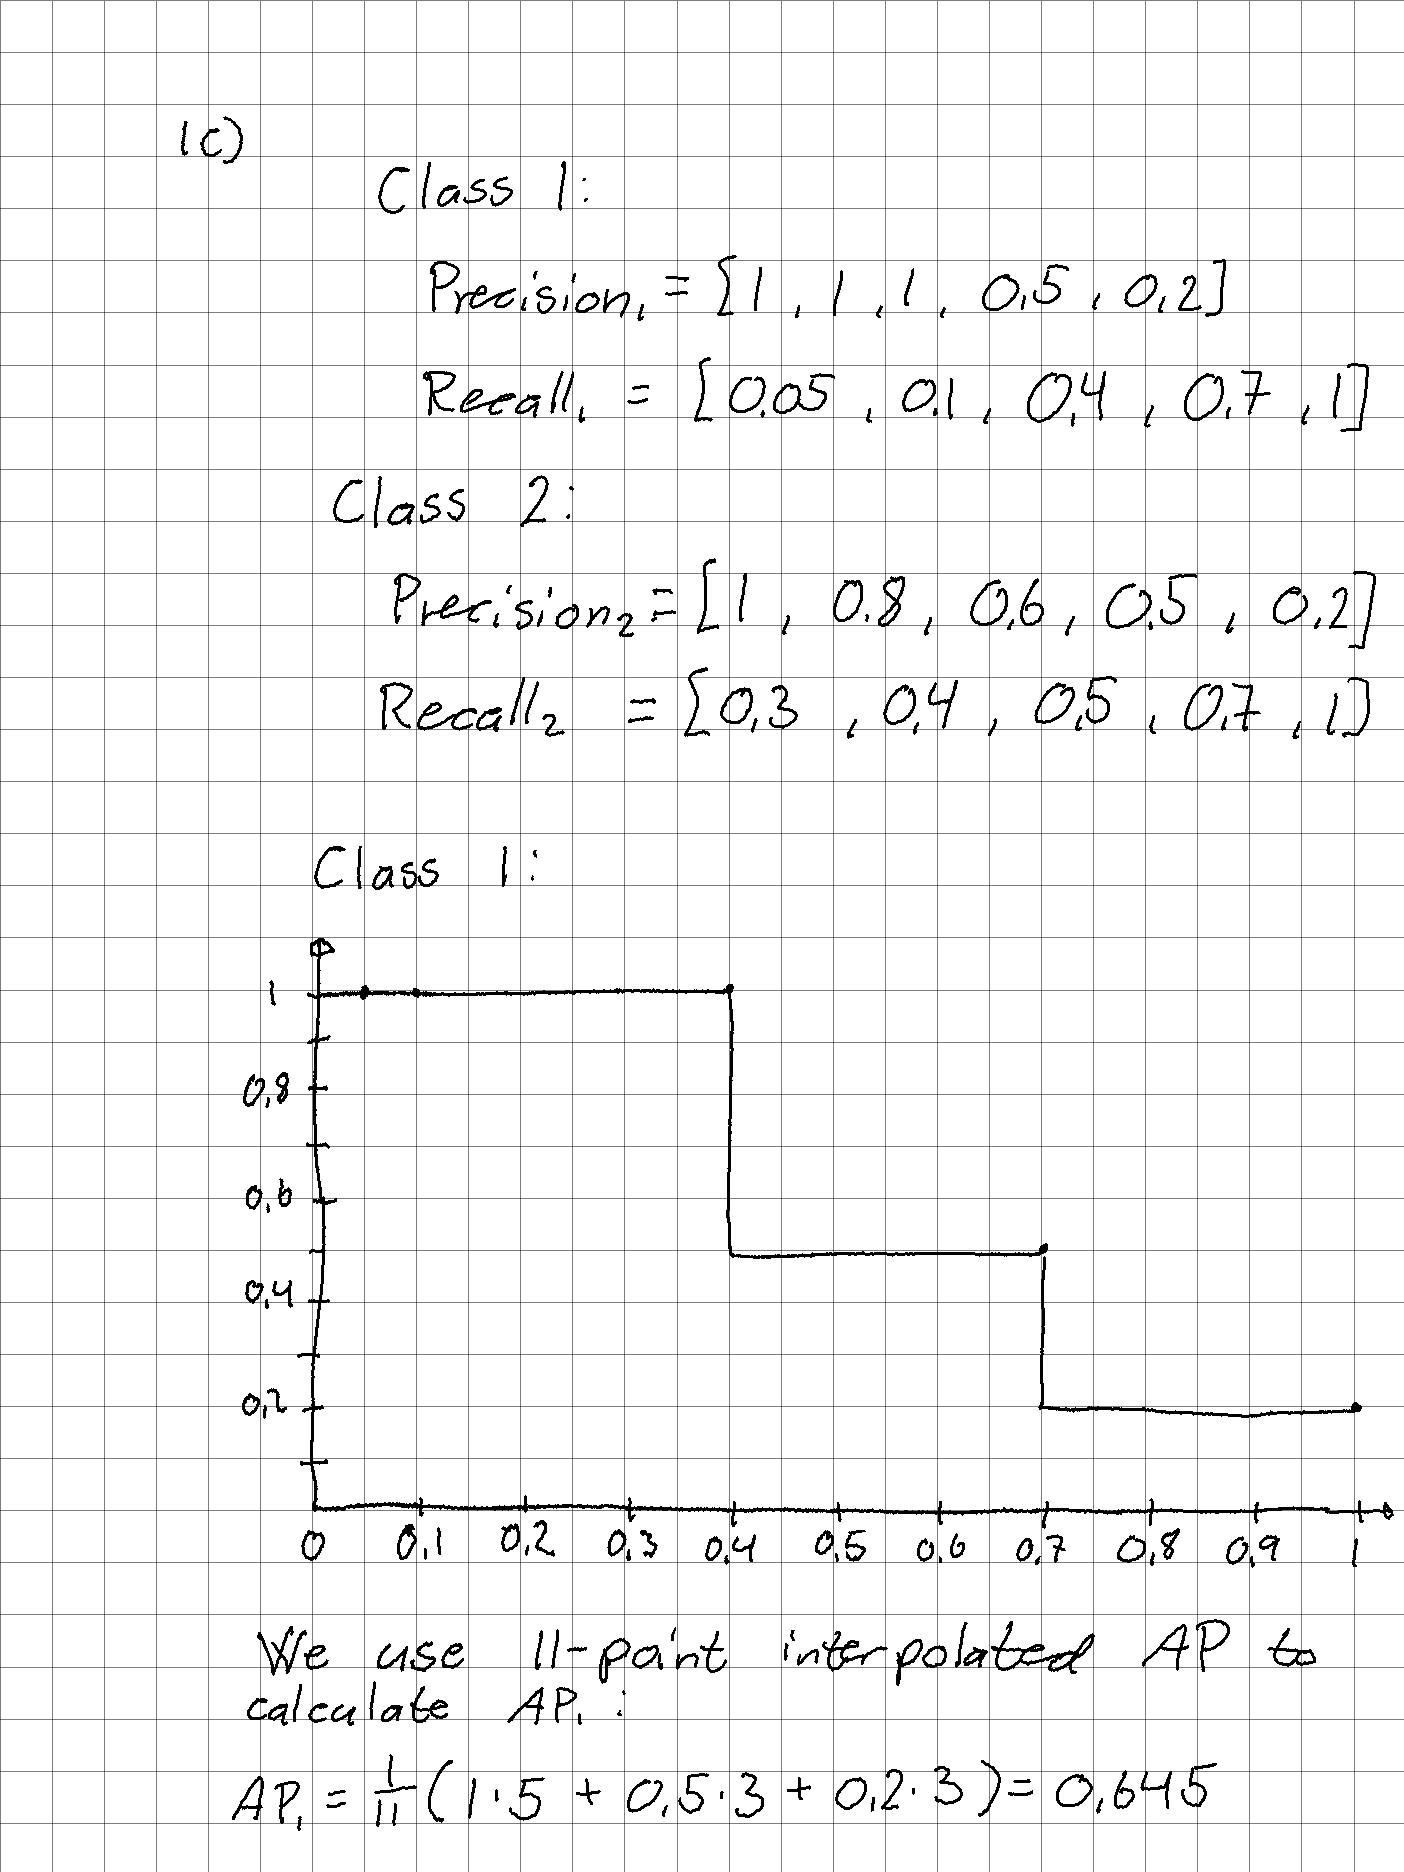 1c)
Class 1:
Precision₁ = [1, 1, 1, 0,5, 0,2]
Recall₁ = [0.05, 0.1, 0,4, 0,7, 1]
Class 2:
Precision₂ = [1, 0.8, 0,6, 0.5, 0,2]
Recall₂ = [0,3, 0,4, 0,5, 0,7, 1]
Class 1:
1
0,8
0,6
0,4
0,2
0 0,1 0,2 0,3 0,4 0,5 0,6 0,7 0,8 0,9 1
We use 11-point interpolated AP to
calculate AP₁:
AP₁ = 1/11 (1·5 + 0,5·3 + 0,2·3) = 0,645